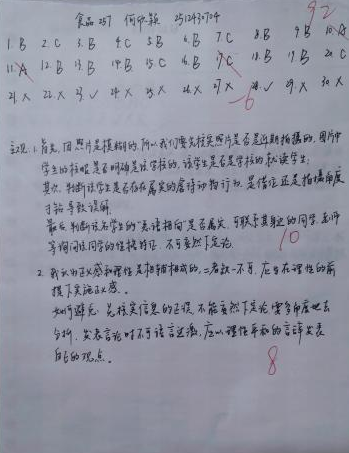 食品257 何欣颖 2512430704
92
1. B 2. C 3. B 4. C 5. B 6. B 7. C 8. B 9. B 10. A
11. A 12. B 13. B 14. B 15. C 16. B 17. C 18. B 19. B 20. C
21. X 22. X 23. ✓ 24. X 25. X 26. X 27. X 28. ✓ 29. X 30. X
-6
主观 1. 首先, 因照片是模糊的, 所以我们要先核实照片是否是近期拍摄的, 图片中
学生的校服是否明确是该学校的, 该学生是否是学校的就读学生;
其次, 判断该学生是否存在属实的虐待动物行为, 是借位还是拍摄角度
才给导致误解
最后, 判断该名学生的"恶语相向"是否属实, 可联系其身边的同学、老师
等询问该同学的性格特征, 不可妄然下定论.
10
2. 我认为正义感和理性是相辅相成的, 二者缺一不可, 应当在理性的前
提下实施正义感.
如何避免: 先核实信息的正误, 不能妄然下定论 要多角度地去
分析, 发表言论时不可语言过激, 应以理性平和的言辞发表
自己的观点.
8